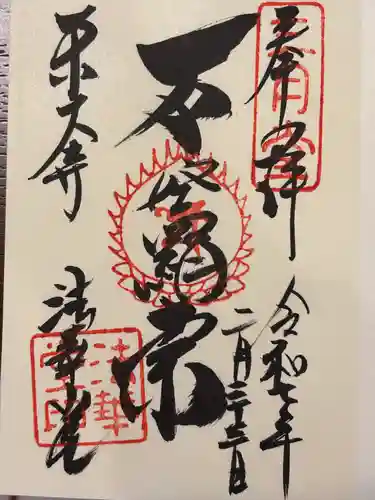 三月堂
奉拝
令和七年
二月二十三日
不空羂索
東大寺
法華堂
法華堂印